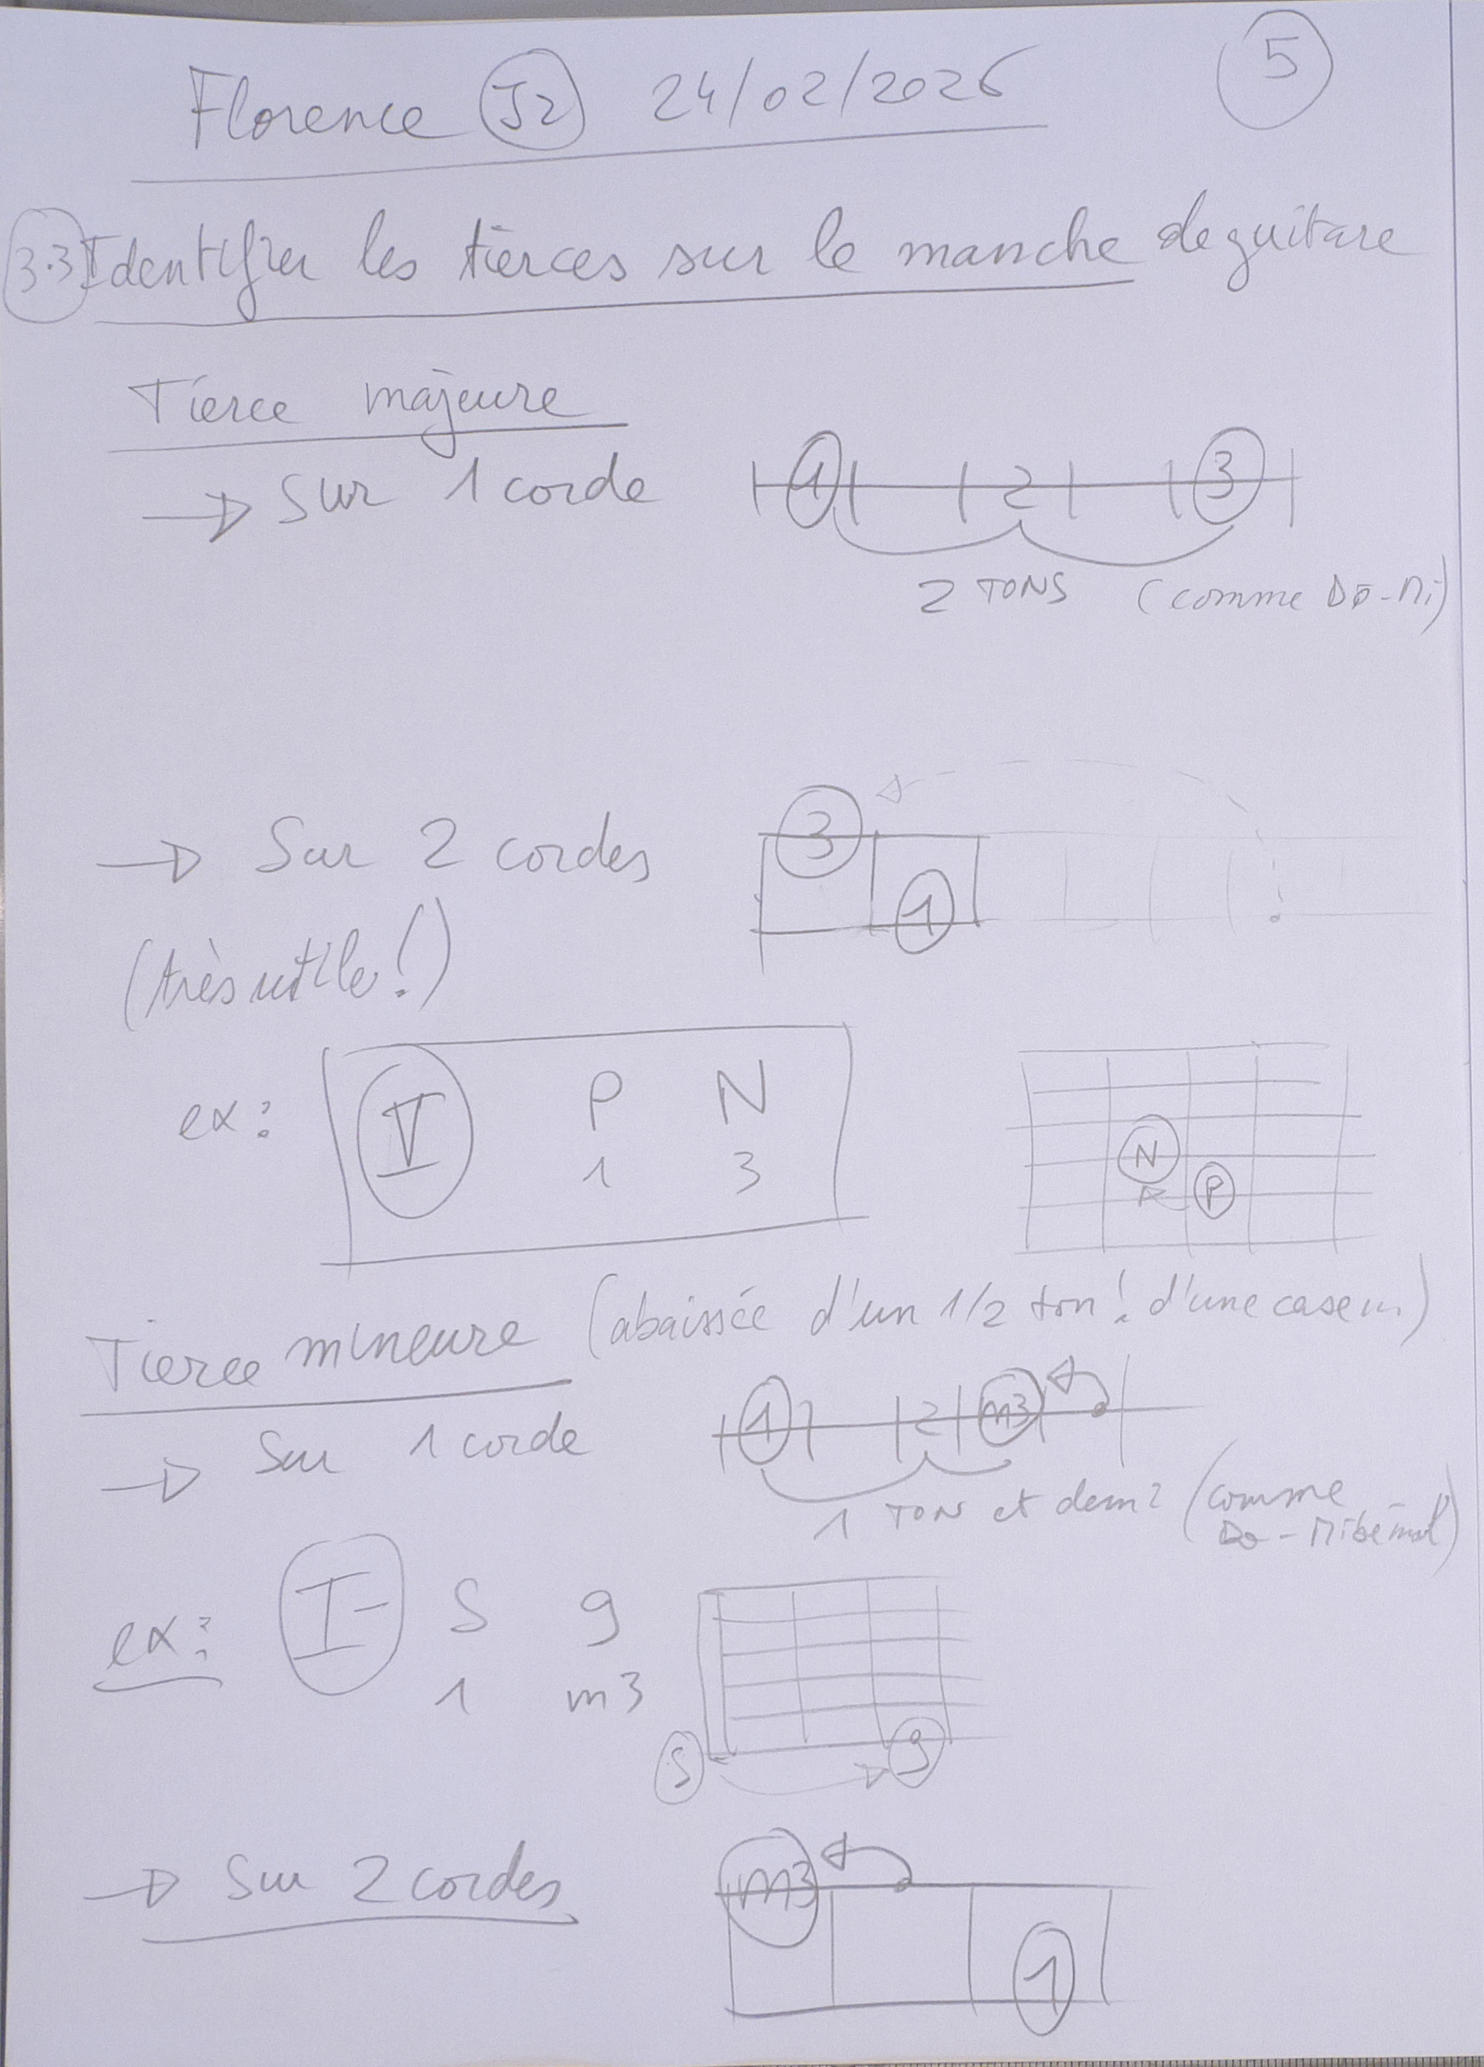 Florence J2 24/02/2026 5
3.3 Identifier les tierces sur le manche de guitare
Tierce majeure
→ Sur 1 corde
1 2 3
2 TONS (comme Do-Mi)
→ Sur 2 cordes
3
1
(très utile !)
ex: V P N
1 3
N
P
Tierce mineure (abaissée d'un 1/2 ton ! d'une case ...)
→ Sur 1 corde
1 2 m3
1 TON et demi (comme
Do - Mi bémol)
ex: I- S g
1 m3
S g
→ Sur 2 cordes
m3
1